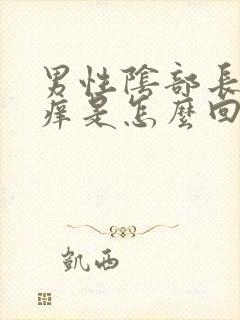 男性陰部長
痒是怎麼回
凱西